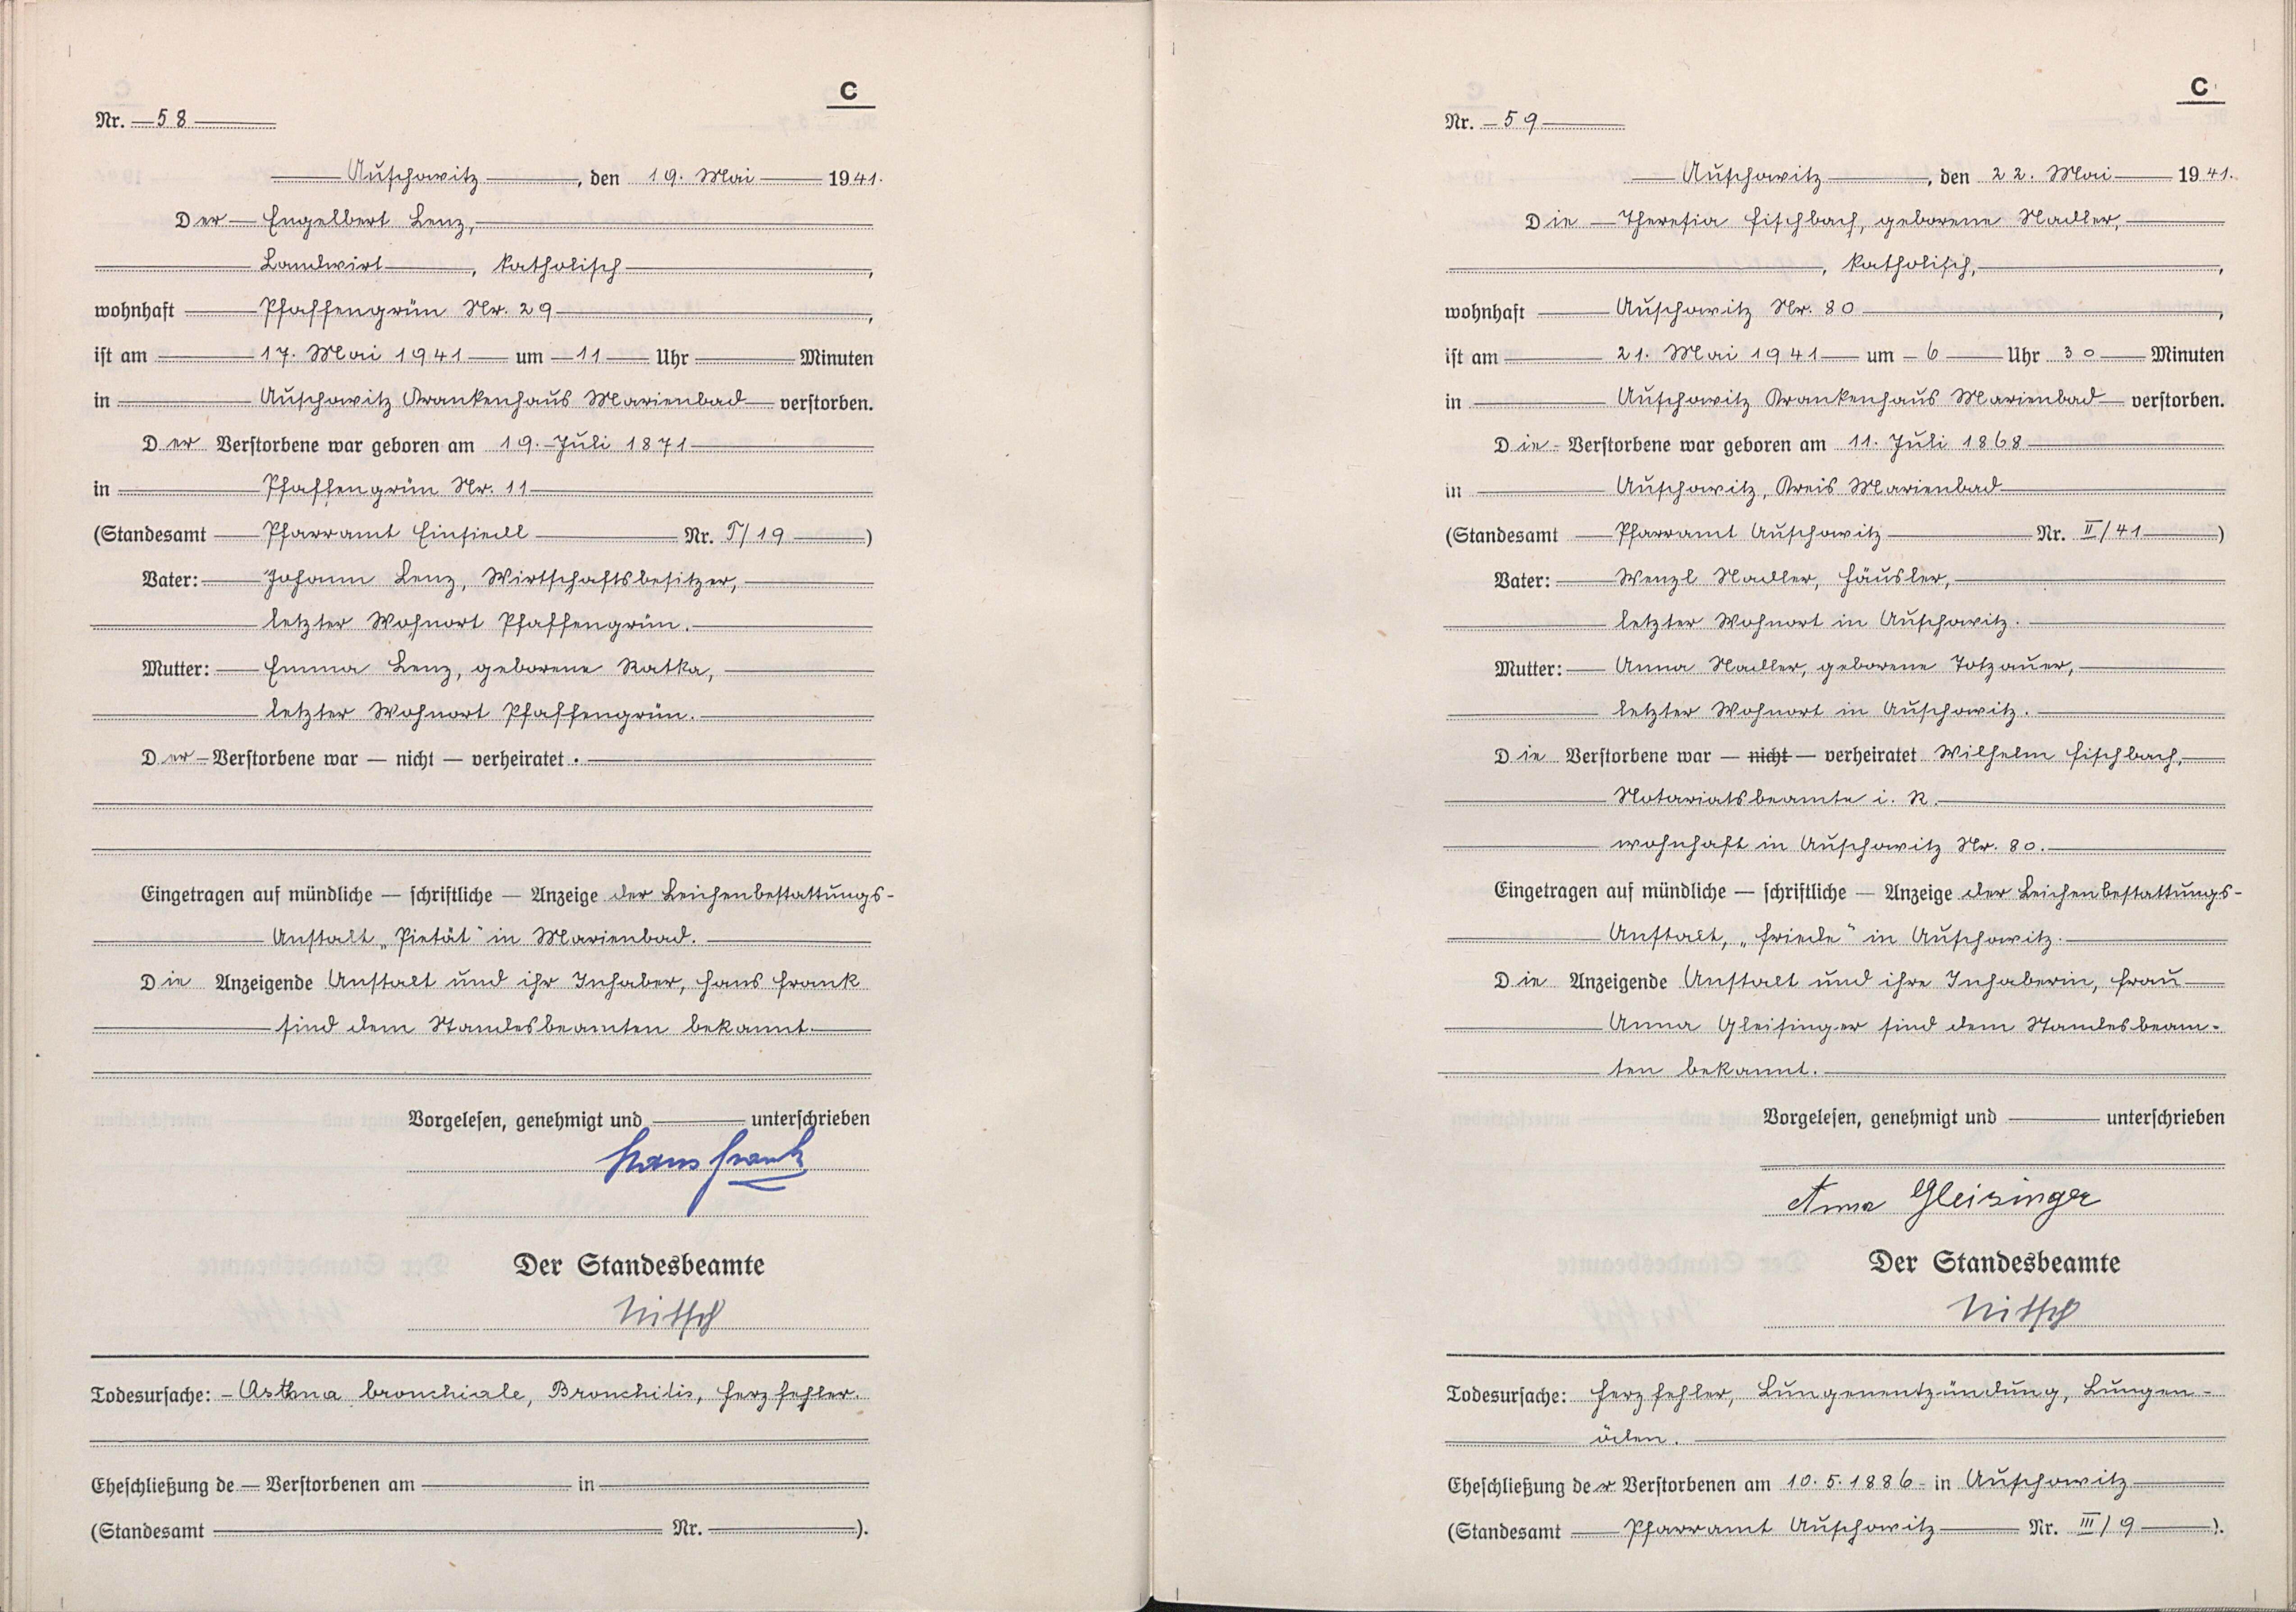 C
Nr. 58
Auschowitz, den 19. Mai 1941.
Der Engelbert Lenz,
Landwirt, katholisch,
wohnhaft Pfaffengrün Nr. 29,
ist am 17. Mai 1941 um 11 Uhr Minuten
in Auschowitz Krankenhaus Marienbad verstorben.
Der Verstorbene war geboren am 19. Juli 1871
in Pfaffengrün Nr. 11
(Standesamt Pfarramt Einsiedl Nr. T/19)
Vater: Johann Lenz, Wirtschaftsbesitzer,
letzter Wohnort Pfaffengrün.
Mutter: Emma Lenz, geborene Ratka,
letzter Wohnort Pfaffengrün.
Der Verstorbene war — nicht — verheiratet.
Eingetragen auf mündliche — schriftliche — Anzeige der Leichenbestattungs-
Anstalt „Pietät" in Marienbad.
Die Anzeigende Anstalt und ihr Inhaber, Hans Frank
sind dem Standesbeamten bekannt.
Vorgelesen, genehmigt und unterschrieben
Hans Frank
Der Standesbeamte
Nitsch
Todesursache: Asthma bronchiale, Bronchitis, Herzfehler.
Eheschließung de Verstorbenen am in
(Standesamt Nr. ).
C
Nr. 59
Auschowitz, den 22. Mai 1941.
Die Theresia Fischbach, geborene Nadler,
, katholisch,,
wohnhaft Auschowitz Nr. 80,
ist am 21. Mai 1941 um 6 Uhr 30 Minuten
in Auschowitz Krankenhaus Marienbad verstorben.
Die Verstorbene war geboren am 11. Juli 1868
in Auschowitz, Kreis Marienbad
(Standesamt Pfarramt Auschowitz Nr. II/41)
Vater: Wenzl Nadler, Häusler,
letzter Wohnort in Auschowitz.
Mutter: Anna Nadler, geborene Totzauer,
letzter Wohnort in Auschowitz.
Die Verstorbene war — nicht — verheiratet Wilhelm Fischbach,
Notariatsbeamte i. R.
wohnhaft in Auschowitz Nr. 80.
Eingetragen auf mündliche — schriftliche — Anzeige der Leichenbestattungs-
Anstalt, „Friede" in Auschowitz.
Die Anzeigende Anstalt und ihre Inhaberin, Frau
Anna Gleisinger sind dem Standesbeam-
ten bekannt.
Vorgelesen, genehmigt und unterschrieben
Anna Gleisinger
Der Standesbeamte
Nitsch
Todesursache: Herzfehler, Lungenentzündung, Lungen-
öden.
Eheschließung der Verstorbenen am 10.5.1886 in Auschowitz
(Standesamt Pfarramt Auschowitz Nr. III/9).